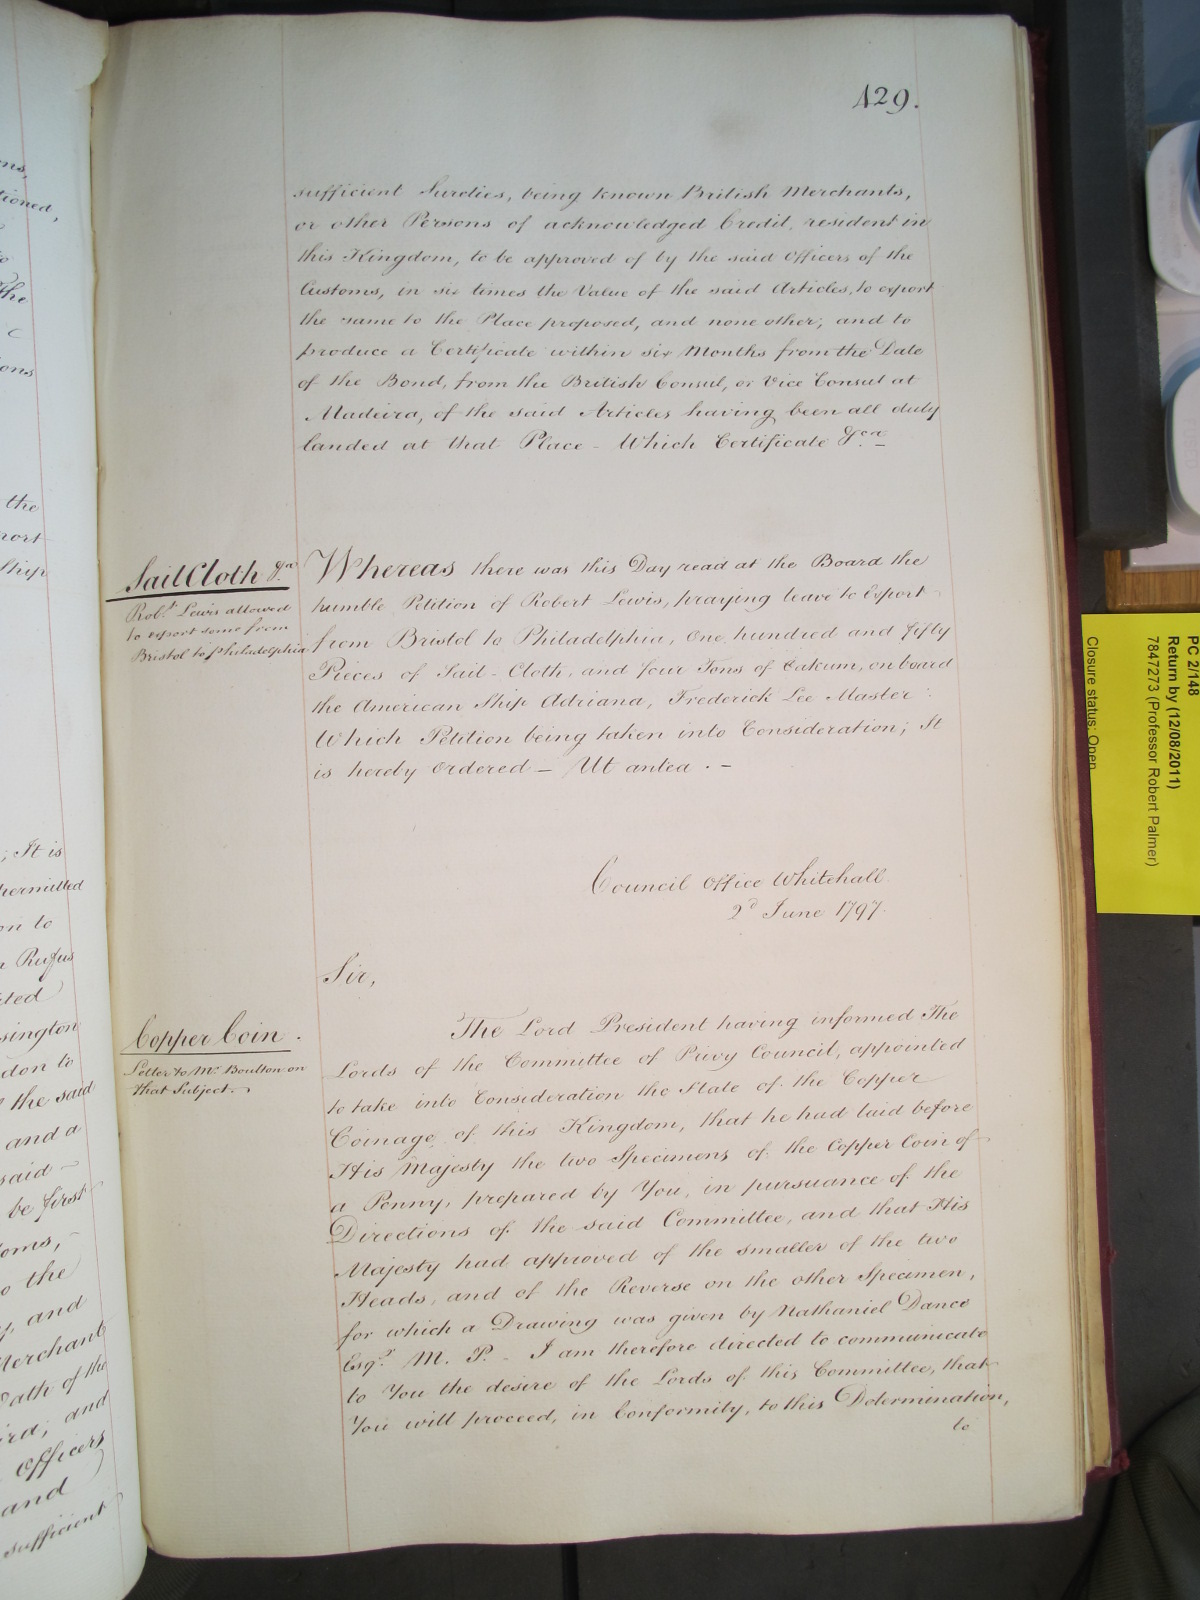 429.
sufficient Sureties, being known British Merchants,
or other Persons of acknowledged Credit, resident in
this Kingdom, to be approved of by the said Officers of the
Customs, in six times the Value of the said Articles, to export
the same to the Place proposed, and none other; and to
produce a Certificate within six Months from the Date
of the Bond, from the British Consul, or Vice Consul at
Madeira, of the said Articles having been all duly
landed at that Place - Which Certificate &ca
Sail Cloth &ca
Robt. Lewis allowed
to export some from
Bristol to philadelphia
Whereas there was this Day read at the Board the
humble Petition of Robert Lewis, praying leave to Export
from Bristol to Philadelphia, One hundred and fifty
Pieces of Sail-Cloth, and four Tons of Oakum, on board
the American Ship Adriana, Frederick Lee Master
Which Petition being taken into Consideration; It
is hereby ordered - Ut antea. -
Council Office Whitehall
2d June 1797.
Sir,
Copper Coin.
Letter to Mr. Boulton on
that Subject.
The Lord President having informed The
Lords of the Committee of Privy Council, appointed
to take into Consideration the State of the Copper
Coinage of this Kingdom, that he had laid before
His Majesty the two Specimens of the Copper Coin of
a Penny, prepared by You, in pursuance of the
Directions of the said Committee, and that His
Majesty had approved of the smaller of the two
Heads, and of the Reverse on the other Specimen,
for which a Drawing was given by Nathaniel Dance
Esqr. M. P. - I am therefore directed to communicate
to You the desire of the Lords of this Committee, that
You will proceed, in Conformity, to this Determination,
to
the
; It is
on to
Rufus
don to
the said
and a
said
be first
to the
and
Merchant
Oath of the
and
Officers
and
sufficient
PC 2/148
Return by (12/08/2011)
7847273 (Professor Robert Palmer)
Closure status: Open